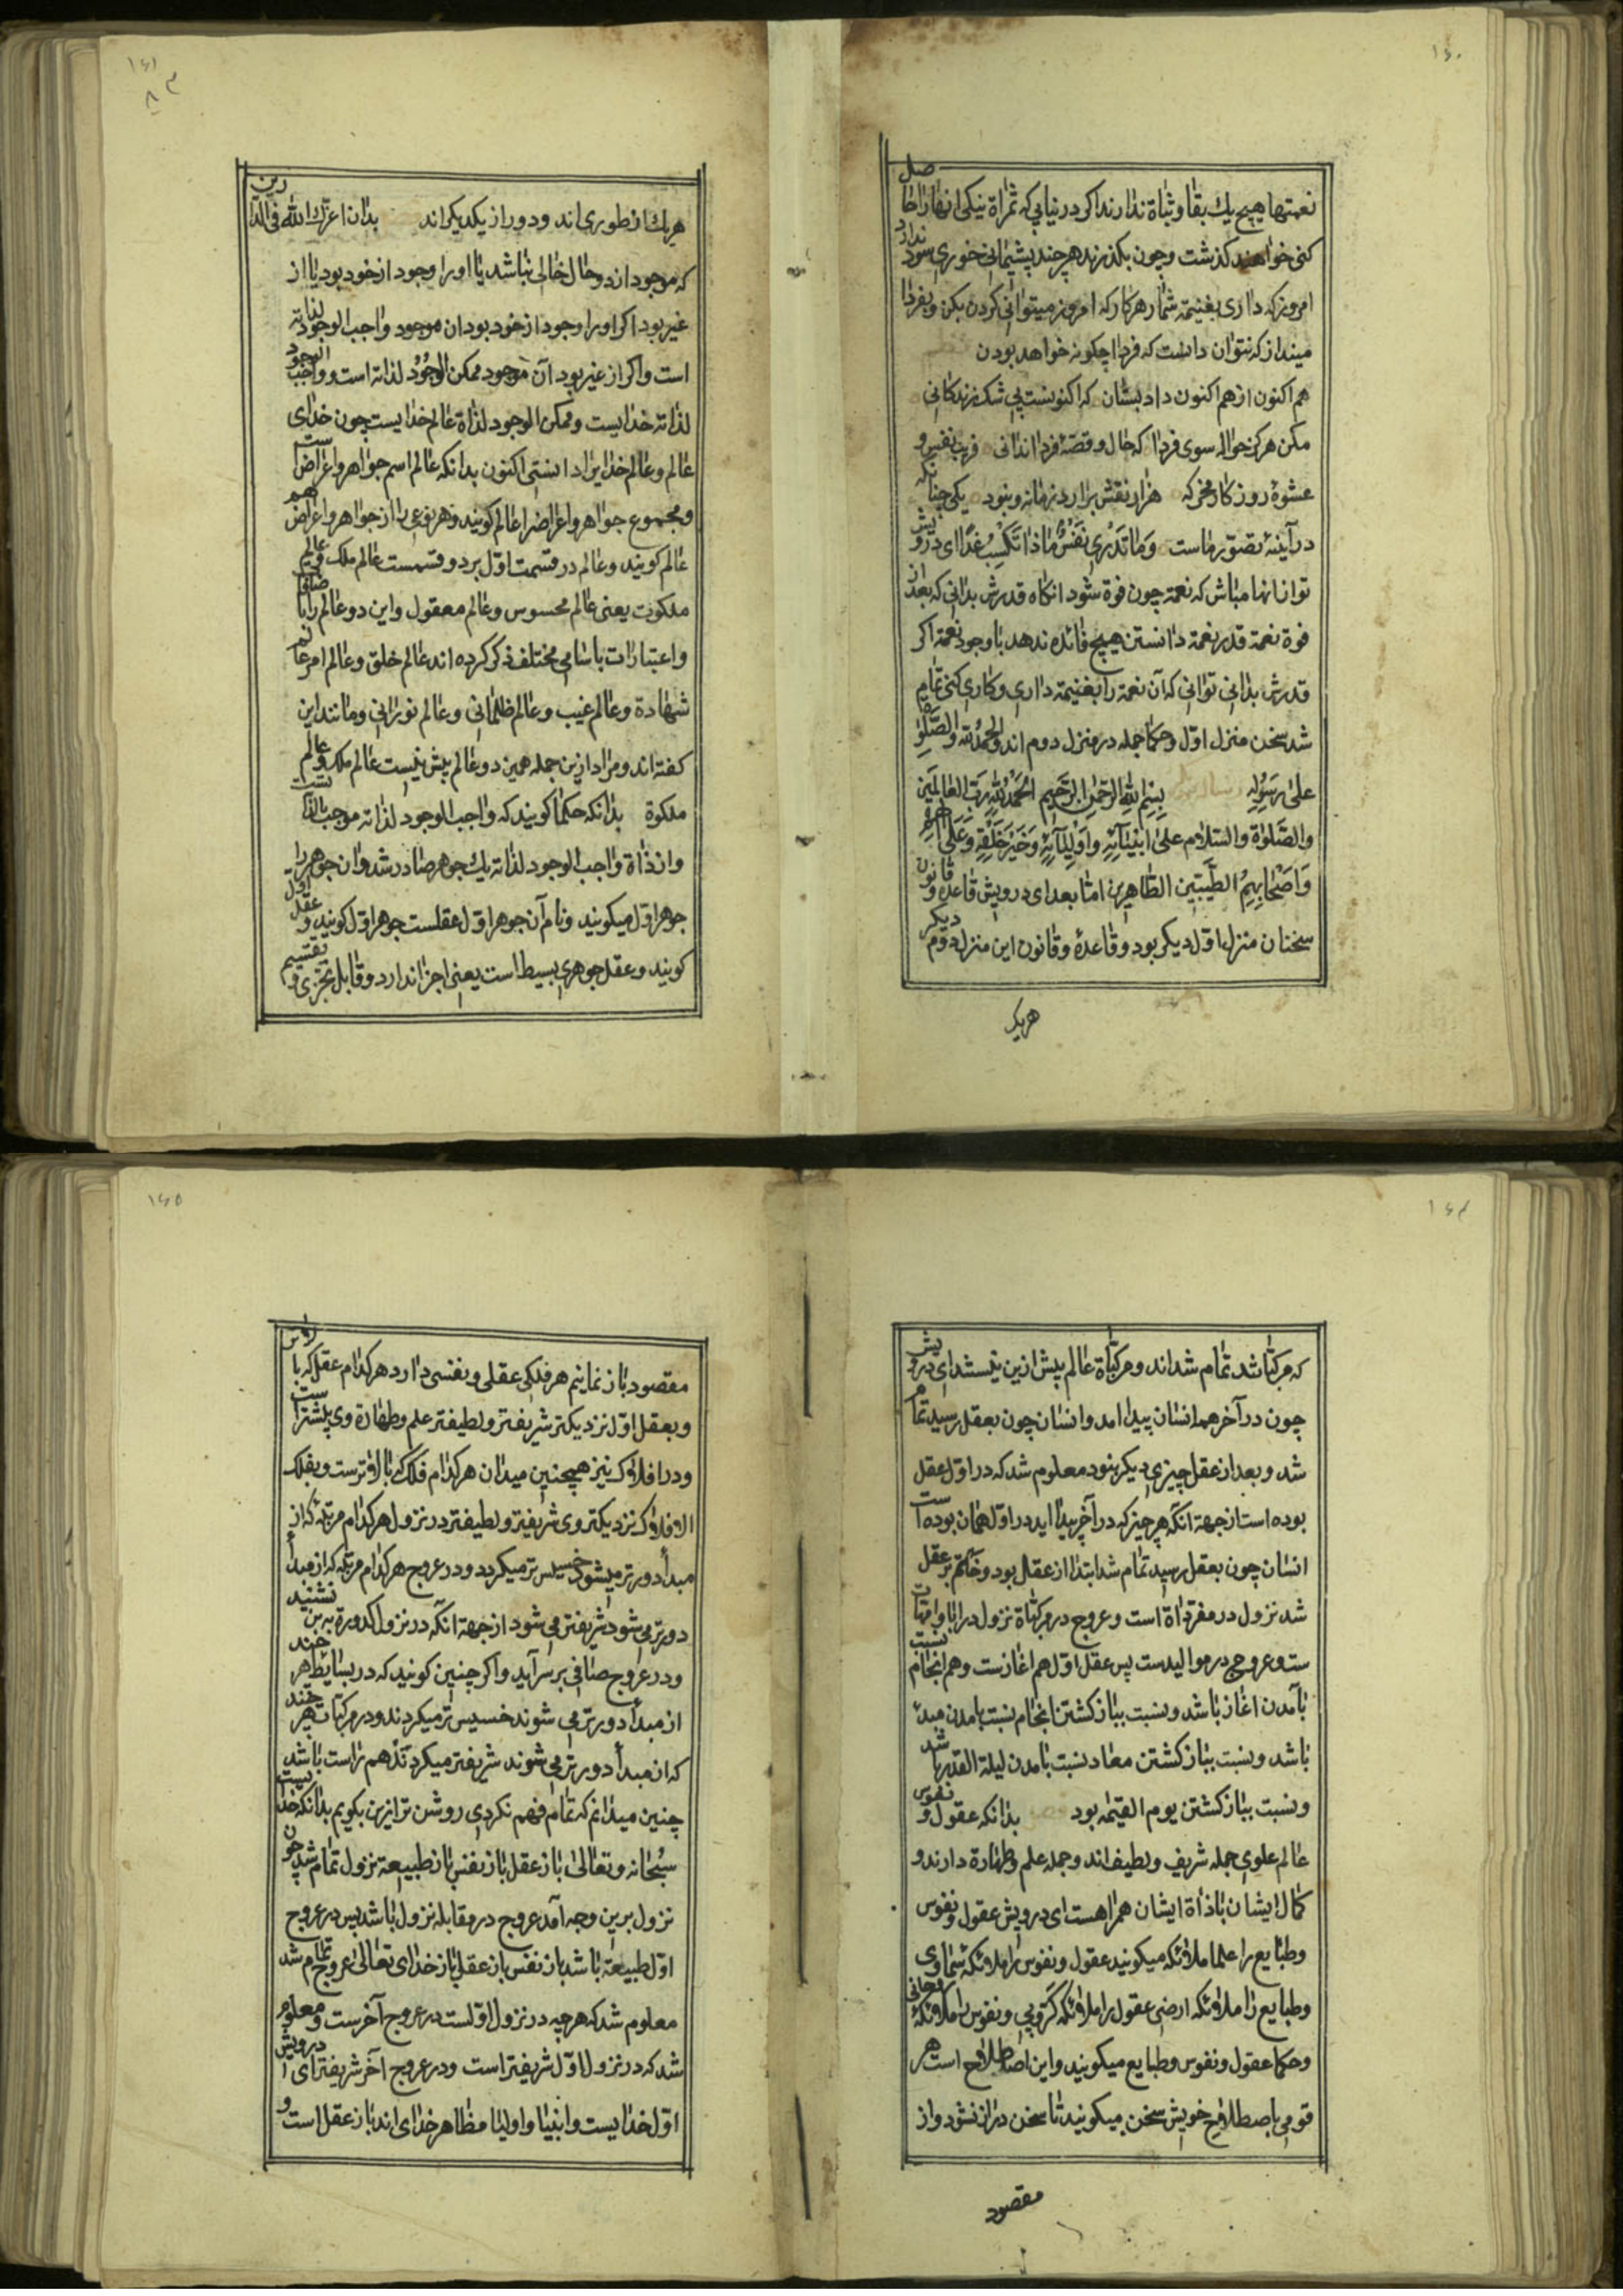 ۱۶۰
نعمتها هیچ یك بقا وثباة ندارند اکر درنیابی که ثمراة نیکی انها را حاصل
کنی خواهند کذشت وچون بکذرند هرچند پشیمانی خوری سود ندارد
امروز که داری بغنیمة شمار هرکار که امروز میتوانی کردن بکن وبفردا
مینداز که نتوان دانست که فردا چکونه خواهد بودن
هم اکنون از هم اکنون داد بستان که اکنونست بی شك زندکانی
مکن هرکز حواله سوی فردا که حال وقصۀ فردا ندانی فریب نفس و
عشوۀ روزکار مخر که هزار نقش برارد زمانه ونبود یکی چنانکه
درآینۀ تصوّر ماست وَمَا تَدْرِی نَفْسٌ مَاذَا تَکْسِبُ غَدًا ای درویش
تو ازانها مباش که نعمة چون فوة شود انکاه قدرش بدانی که بعد از
فوة نعمة قدر نعمة دانستن هیچ فائده ندهد باوجود نعمة اکر
قدرش بدانی توانی که آن نعمة را بغنیمة داری وکاری کنی تمام
شد سخن منزل اوّل وحکما جمله در منزل دوم اند والحمدُ لله والصَّلوٰة
علیٰ رَسُولِهِ بِسْمِ اللهِ الرَّحْمٰنِ الرَّحِیمِ اَلْحَمْدُ لِلّٰهِ رَبِّ العَالَمِینَ
والصَّلوٰة والسَّلام علیٰ انبیَآئِهِ وَاَوْلِیَآئِهِ وَخَیْرِ خَلْقِهِ وَعَلیٰ آلِهِمْ
وَاَصْحَابِهِمُ الطَّیِّبِین الطَّاهِرین امّا بعد ای درویش قاعده وقانون
سخنان منزل اوّل دیکر بود وقاعدۀ وقانون این منزل دوم دیکر
هریک
۱۶۱
هریك از طوری اند ودور از یکدیکراند بدان اعزّك الله فی الدّارین
که موجود از دو حال خالی نباشد یا اورا وجود از خود بود یا از
غیر بود اکر اورا وجود از خود بود ان موجود واجب الوجود لذاته
است واکر از غیر بود آن موجود ممکن الوجُودْ لذاته است وواجب الوجود
لذاته خدایست وممکن الوجود لذاة عالم خدایست چون خدای
عالم وعالم خدایرا دانستی اکنون بدانکه عالم اسم جواهر واعراض است
ومجموع جواهر واعراض را عالم کویند وهر نوعی را از جواهر واعراض هم
عالم کویند وعالم در قسمت اوّل بر دو قسمست عالم ملك وعالم
ملکوت یعنی عالم محسوس وعالم معقول واین دو عالم را باضافات
واعتبارات باسامی مختلف ذکر کرده اند عالم خلق وعالم امر عالم
شهادة وعالم غیب وعالم ظلمانی وعالم نورانی ومانند این
کفته اند ومراد ازین جمله همین دو عالم بیش نیست عالم ملك وعالم
ملکوة بدانکه حکما کویند که واجب الوجود لذاته موجب بالذاتست
واز ذاة واجب الوجود لذاته یك جوهر صادر شد وان جوهر را
جوهر اوّل میکویند ونام آن جوهر اوّل عقلست جوهر اوّل کویند وعقل اول
کویند وعقل جوهری بسیط است یعنی اجزا ندارد وقابل تجزی وتقسیم
۱۶۴
که مرکبّات شد تمام شد اند ومرکباة عالم پیش ازین نیستند ای درویش
چون در آخر همه انسان پیدا امد وانسان چون بعقل رسید تمام
شد وبعد از عقل چیزی دیکر نبود معلوم شد که در اوّل عقل
بوده است از جهة انکه هر چیز که در آخر پیدا اید در اوّل همان بوده است
انسان چون بعقل رسید تمام شد ابتدا از عقل بود وختم بر عقل
شد نزول در مفرداة است وعروج در مرکباة نزول در ابا وامهات
ست وعروج در موالیدست پس عقل اوّل هم اغازست وهم انجام نسبت
بآمدن اغاز باشد ونسبت بباز کشتن انجام نسبت بامدن مبدء
باشد ونسبت بباز کشتن معاد نسبت بامدن لیلة القدر باشد
ونسبت بباز کشتن یوم القیمه بود بدانکه عقول ونفوس
عالم علوی جمله شریف ولطیف اند وجمله علم وطهارة دارند و
کمال ایشان باذاة ایشان همراهست ای درویش عقول ونفوس
وطبایع را علما ملائکه میکویند عقول ونفوس را ملائکه سماوی
وطبایع را ملائکه ارضی عقول را ملائکه کرّوبی ونفوس را ملائکۀ روحانی
وحکما عقول ونفوس وطبایع میکویند واین اصطلاح است هر
قومی باصطلاح خویش سخن میکویند تا سخن دراز نشود واز
مقصود
۱۶۵
مقصود باز نمانیم هر فلکی عقلی ونفسی دارد هر کدام عقل که بالاتر
وبعقل اوّل نزدیکتر شریفتر ولطیفتر علم وطهارة وی بیشتر است
ودر افلاك نیز همچنین میدان هر کدام فلك که بالاترست وبفلك
الافلاك نزدیکتر وی شریفتر ولطیفتر در نزول هر کدام مرتبۀ که از
مبدأ دورتر میشود خسیس تر میکردد ودر عروج هر کدام مرتبه که از مبدأ
دورتر می شود شریفتر می شود از جهة انکه در نزول کدورة به بن نشیند
ودر عروج صافی بر سر آید واکر چنین کویند که در بسایط هر چند
از مبدأ دورتر می شوند خسیس تر میکردند ودر مرکبات هر چند
که از مبدأ دورتر می شوند شریفتر میکردند هم راست باشد
چنین میدانم که تمام فهم نکردی روشن تر ازین بکویم بدانکه خداست
سُبْحَانه وتعالیٰ باز عقل باز نفس باز طبیعة نزول تمام شد چون
نزول برین وجه آمد عروج در مقابله نزول باشد پس در عروج
اوّل طبیعة باشد باز نفس باز عقل باز خدای تعالیٰ عروج تمام شد
معلوم شد که هرچه در نزول اوّلست در عروج آخرست ومعلوم
شد که در نزول اوّل شریفتر است ودر عروج آخر شریفتر ای درویش
اوّل خدایست وانبیا واولیا مظاهر خدای اند باز عقل است و